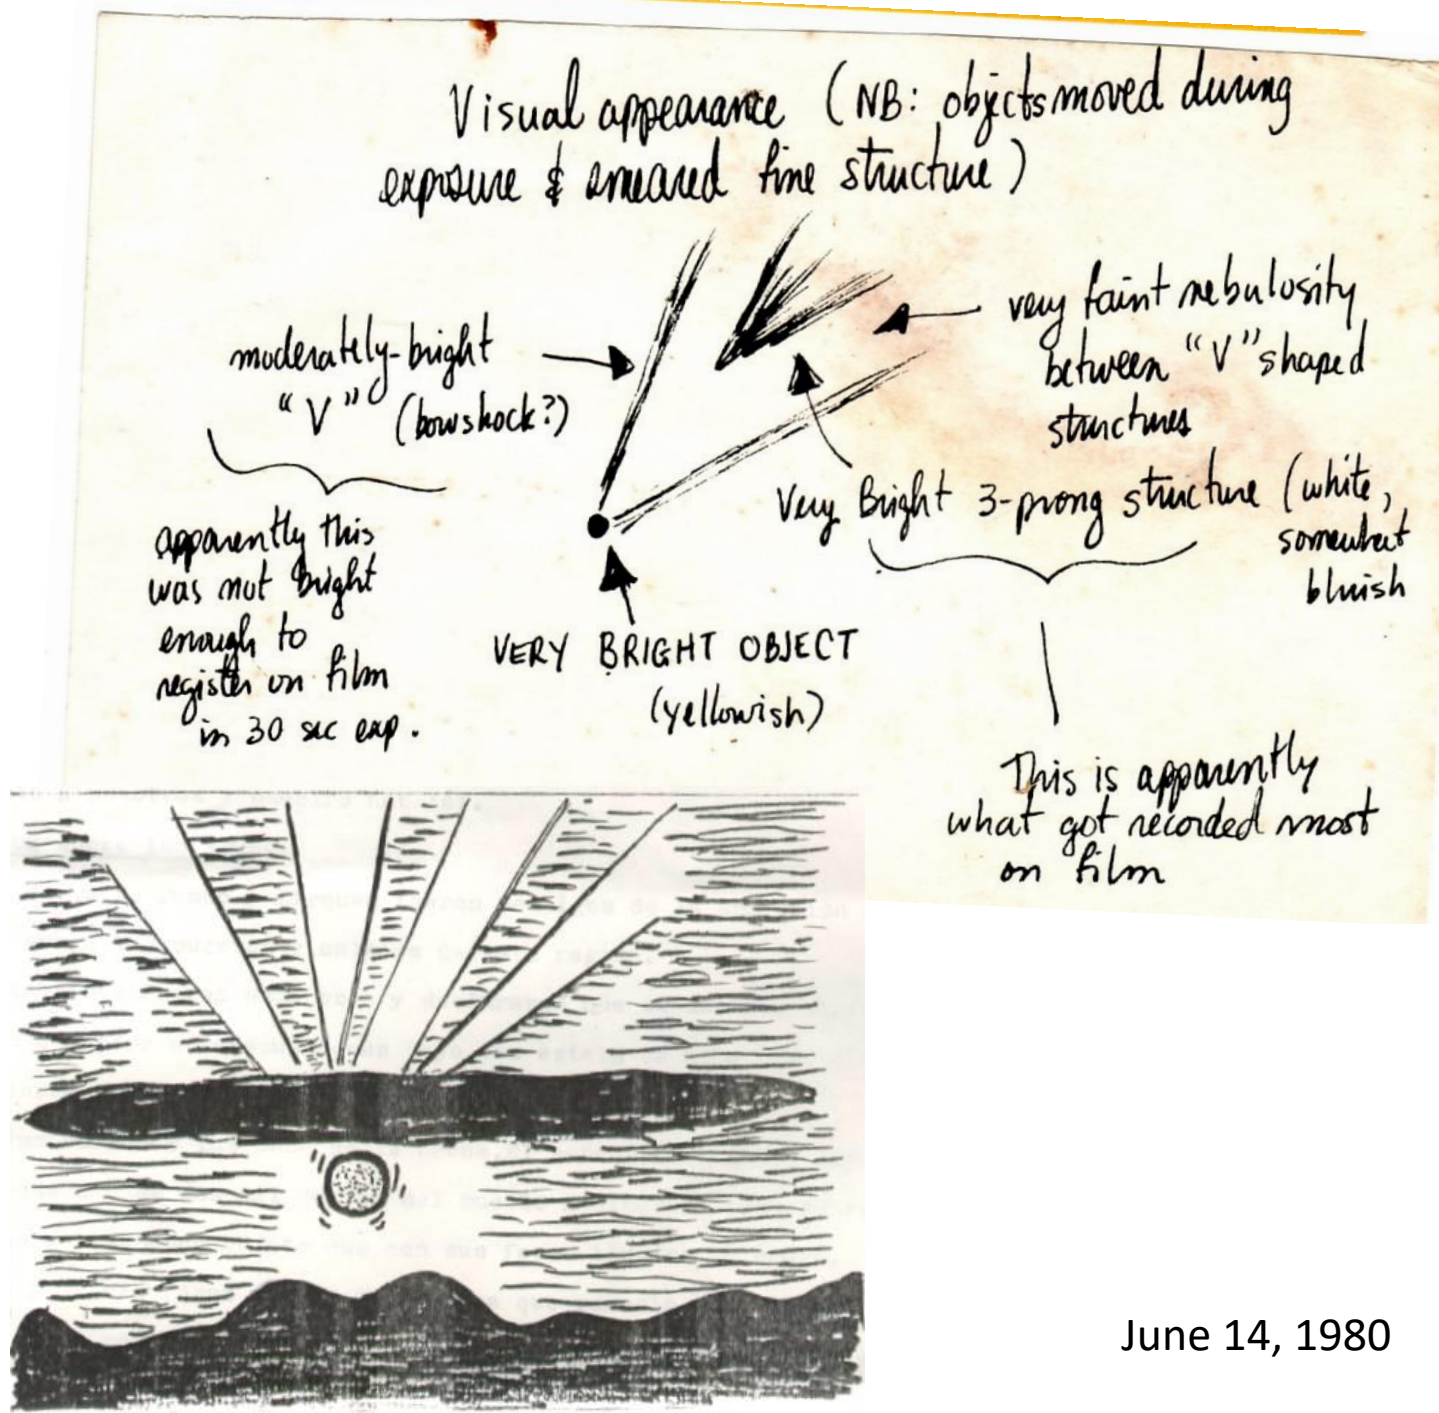 Visual appearance (NB: objects moved during
exposure & smeared fine structure)
moderately-bright
"V" (bowshock?)
apparently this
was not bright
enough to
register on film
in 30 sec exp.
very faint nebulosity
between "V" shaped
structures
Very Bright 3-prong structure (white,
somewhat
bluish
VERY BRIGHT OBJECT
(yellowish)
This is apparently
what got recorded most
on film
June 14, 1980